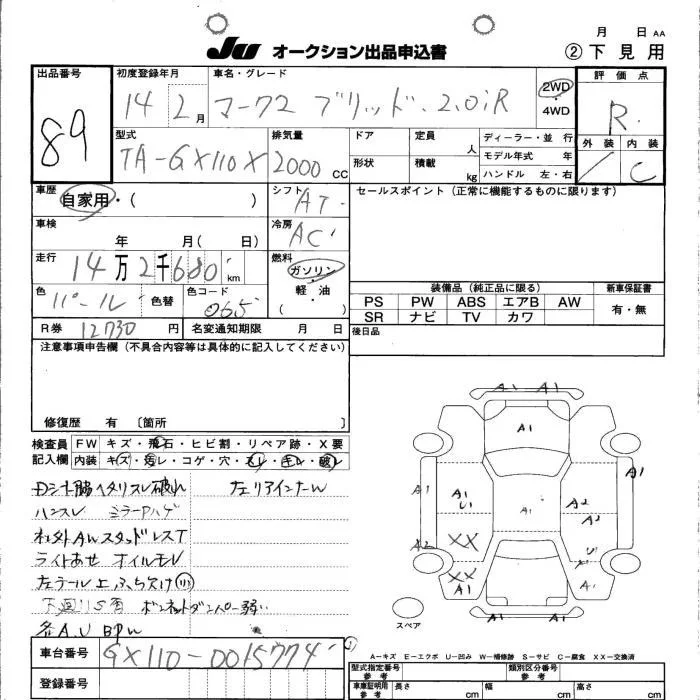 月 日 AA
JU オークション出品申込書 ②下見用
出品番号 初度登録年月 車名・グレード 2WD ・ 4WD 評価点
89 14 2月 マーク2 ブリッド.2.0iR R
型式 排気量 ドア 定員 人 ディーラー・並行 外装 内装
TA-GX110X 2000 CC 形状 積載 kg モデル年式 年 / C
ハンドル 左・右
車歴 自家用・( ) シフト AT セールスポイント(正常に機能するものに限ります)
車検 年 月( 日) 冷房 AC
走行 14万2千680 km 燃料 ガソリン・軽油・( )
装備品(純正品に限る) 新車保証書
色 パール 色替 色コード 065
PS PW ABS エアB AW 有・無
SR ナビ TV カワ
R券 12730円 名変通知期限 月 日 後日品
注意事項申告欄(不具合内容等は具体的に記入してください)
修復歴 有 〔箇所 〕
検査員記入欄 FW キズ・飛石・ヒビ割・リペア跡・X要
内装 キズ・汚レ・コゲ・穴・スレ・キレ・破レ
Dシート脇ヘタリスレ破れ
ハンスレ
ライトあせ オイルモレ
ボンネットダンパー弱い
A1 A1
A1
A1 A1 U1 A1 A2 A1
A2
A2 XX U1
XX A1 A1
A1 A1
スペア
A-キズ E-エクボ U-凹み W-補修跡 S-サビ C-腐食 XX-交換済
車台番号 GX110-0015774
型式指定番号 参考 類別区分番号 参考
登録番号
車庫証明用 参考 長さ cm 幅 cm 高さ cm